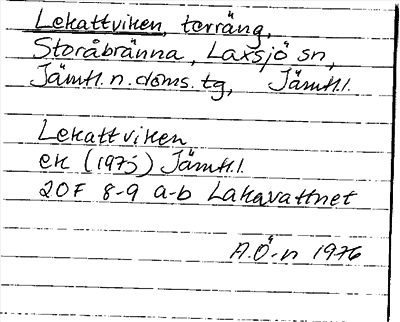 Lekattviken, terräng,
Storåbränna, Laxsjö sn,
Jämtl. n. doms. tg, Jämtl.
Lekattviken
ek (1975) Jämtl.
20F 8-9 a-b Lakavattnet
A.Ö-n 1976